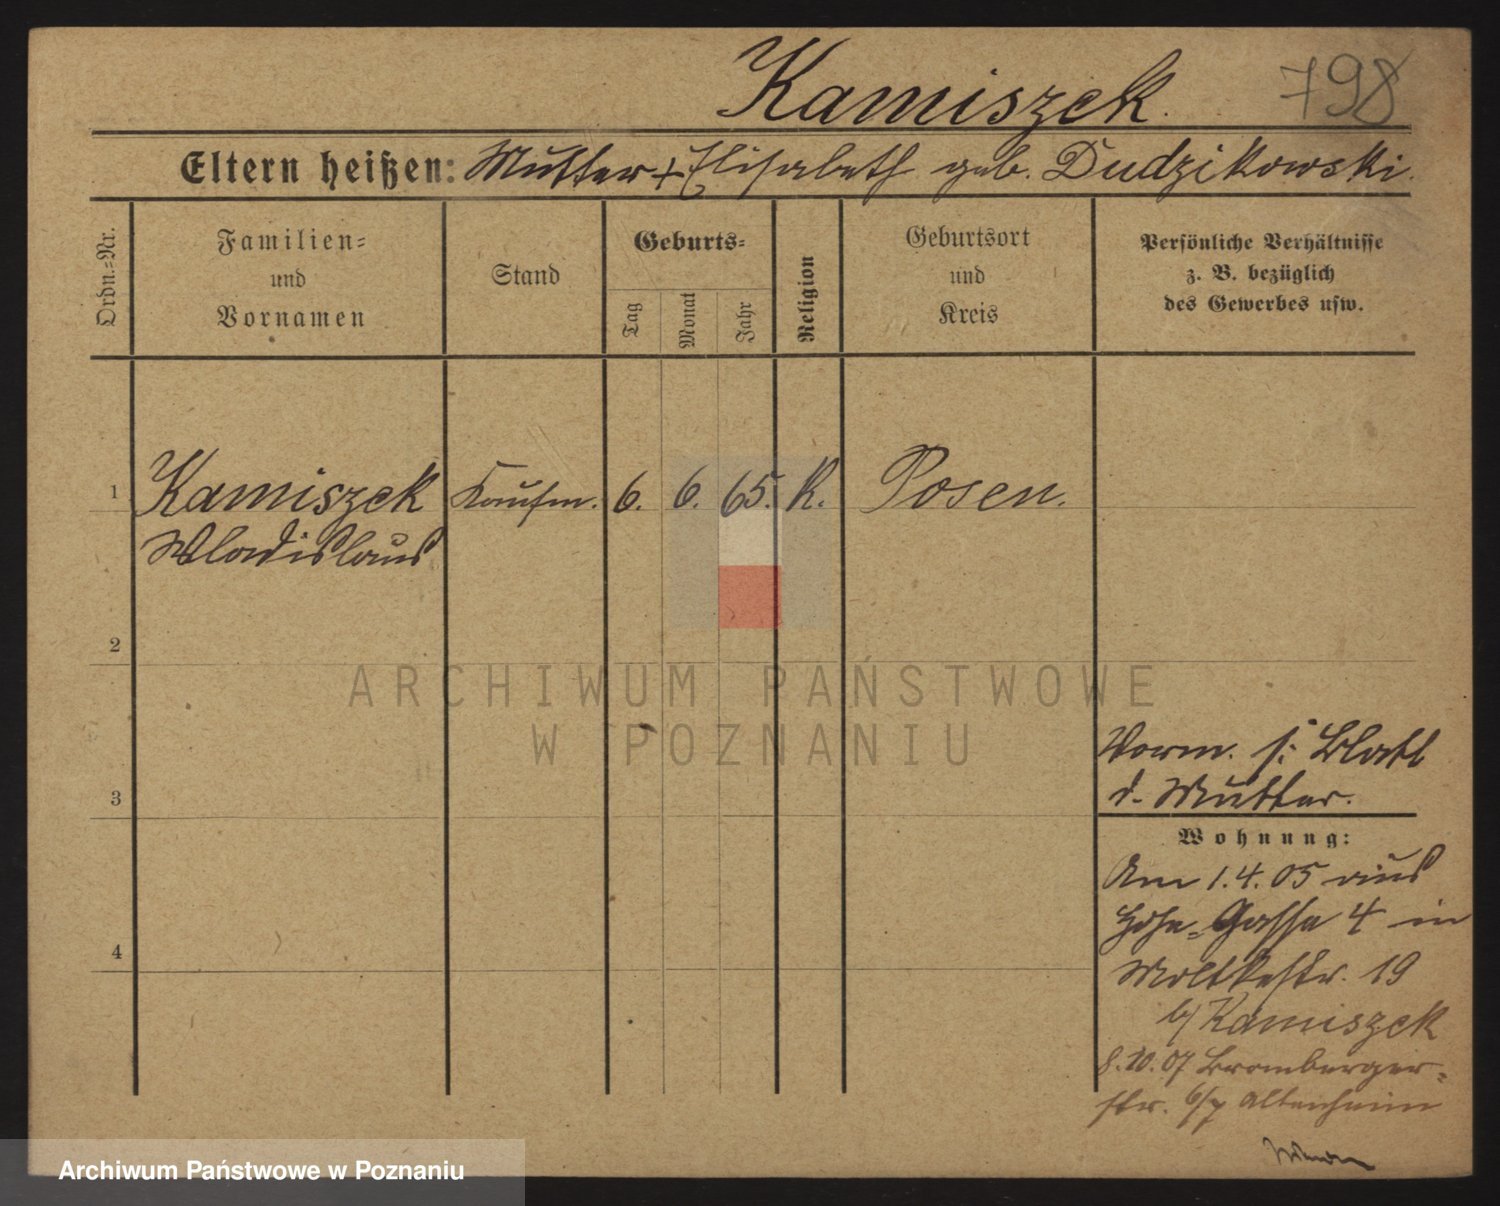 Kamiszek.
798
Eltern heißen: Mutter + Elisabeth geb. Dudzikowski.
Ordn.=Nr.
Familien=
und
Vornamen
Stand
Geburts=
Tag
Monat
Jahr
Religion
Geburtsort
und
Kreis
Persönliche Verhältnisse
z. B. bezüglich
des Gewerbes usw.
1 Kamiszek Kaufm. 6. 6. 65. K. Posen.
Wladislaus
2
ARCHIWUM PAŃSTWOWE
W POZNANIU
Verm. s: Blatt
d. Mutter.
3
Wohnung:
Am 1.4.05 aus
Hohe=Gasse 4 in
4
Moltkestr. 19
b/ Kamiszek
8.10.07 Bromberger=
str. 6/7 Altenheim
Archiwum Państwowe w Poznaniu